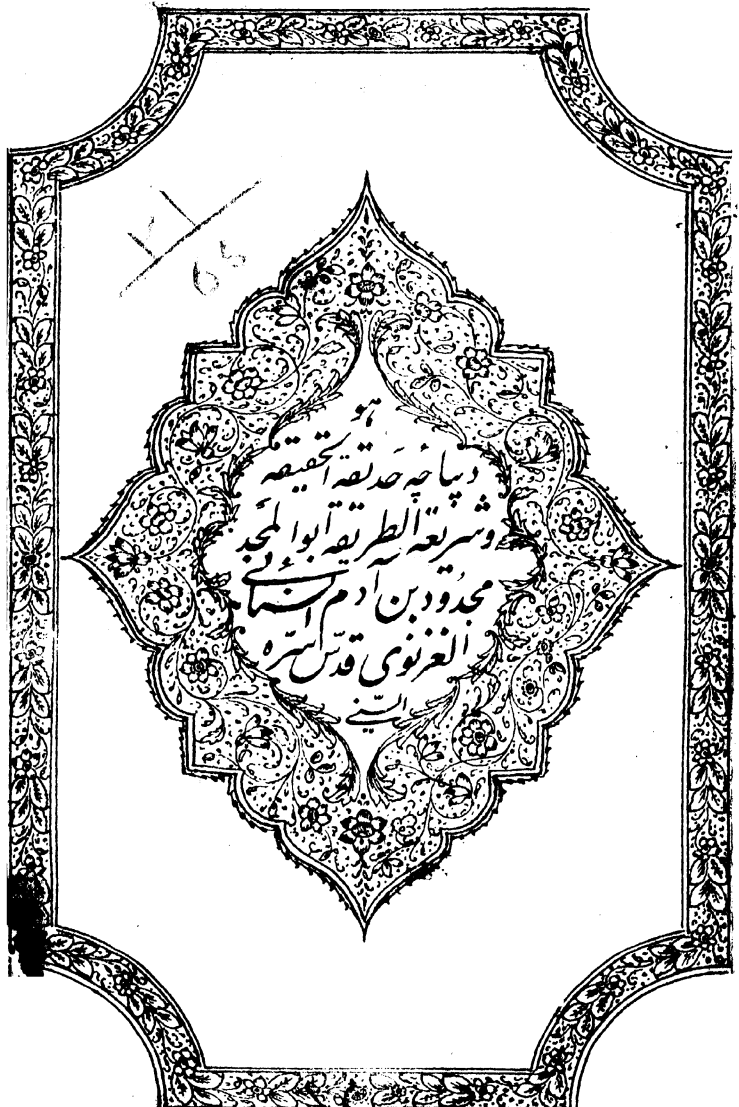 هو
دیباچه حدیقة الحقیقه
وشریعة الطریقه ابوالمجد
مجدود بن آدم السنائی
الغزنوی قدّس سرّه
السنّی